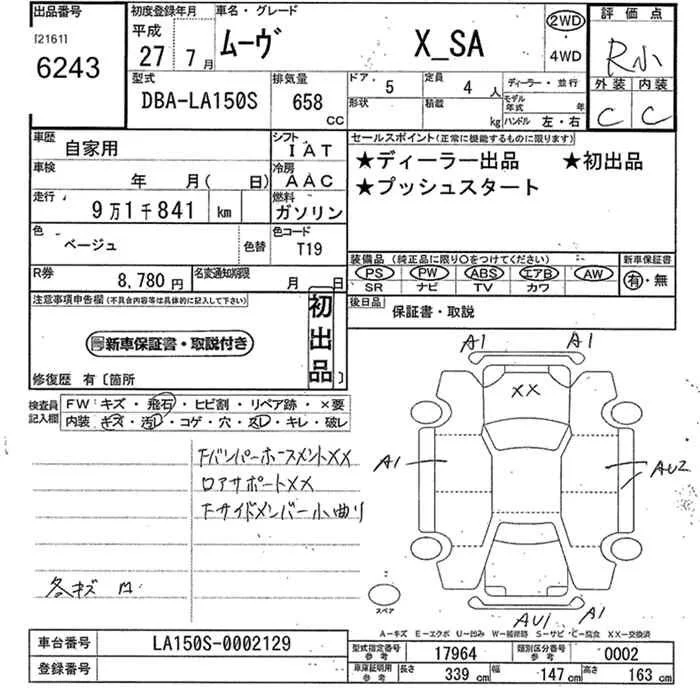 出品番号 初度登録年月 車名・グレード 評価点
[2161] 平成
6243 27 7月 ムーヴ X_SA 2WD 4WD R小
型式 排気量 ドア 5 定員 4人 ディーラー・並行 外装 内装
DBA-LA150S 658 CC 形状 積載 kg モデル年式 年 ハンドル 左・右 C C
車歴 自家用 シフト IAT セールスポイント(正常に機能するものに限ります)
車検 年 月( 日) 冷房 AAC ★ディーラー出品 ★初出品
走行 9万1千841 km 燃料 ガソリン ★プッシュスタート
色 ベージュ 色替 色コード T19
装備品(純正品に限り○をつけてください) 新車保証書
R券 8,780円 名変通知期限 月 日 PS PW ABS エアB AW 有・無
SR ナビ TV カワ
注意事項申告欄(不具合内容等は具体的に記入して下さい) 初出品 後日品 保証書・取説
新車保証書・取説付き
修復歴 有〔箇所 〕
検査員記入欄 FW:キズ・飛石・ヒビ割・リペア跡・×要
内装:キズ・汚レ・コゲ・穴・スレ・キレ・破レ
FバンパーホースメントXX
ロアサポートXX
Fサイドメンバー小曲り
各キズ
A1 A1
XX
A1 AU2
スペア
AU1 A1
A-キズ E-エクボ U-凹み W-補修跡 S-サビ C-腐食 XX-交換済
車台番号 LA150S-0002129 型式指定番号 参考 17964 類別区分番号 参考 0002
登録番号 車庫証明用 参考 長さ 339 cm 幅 147 cm 高さ 163 cm